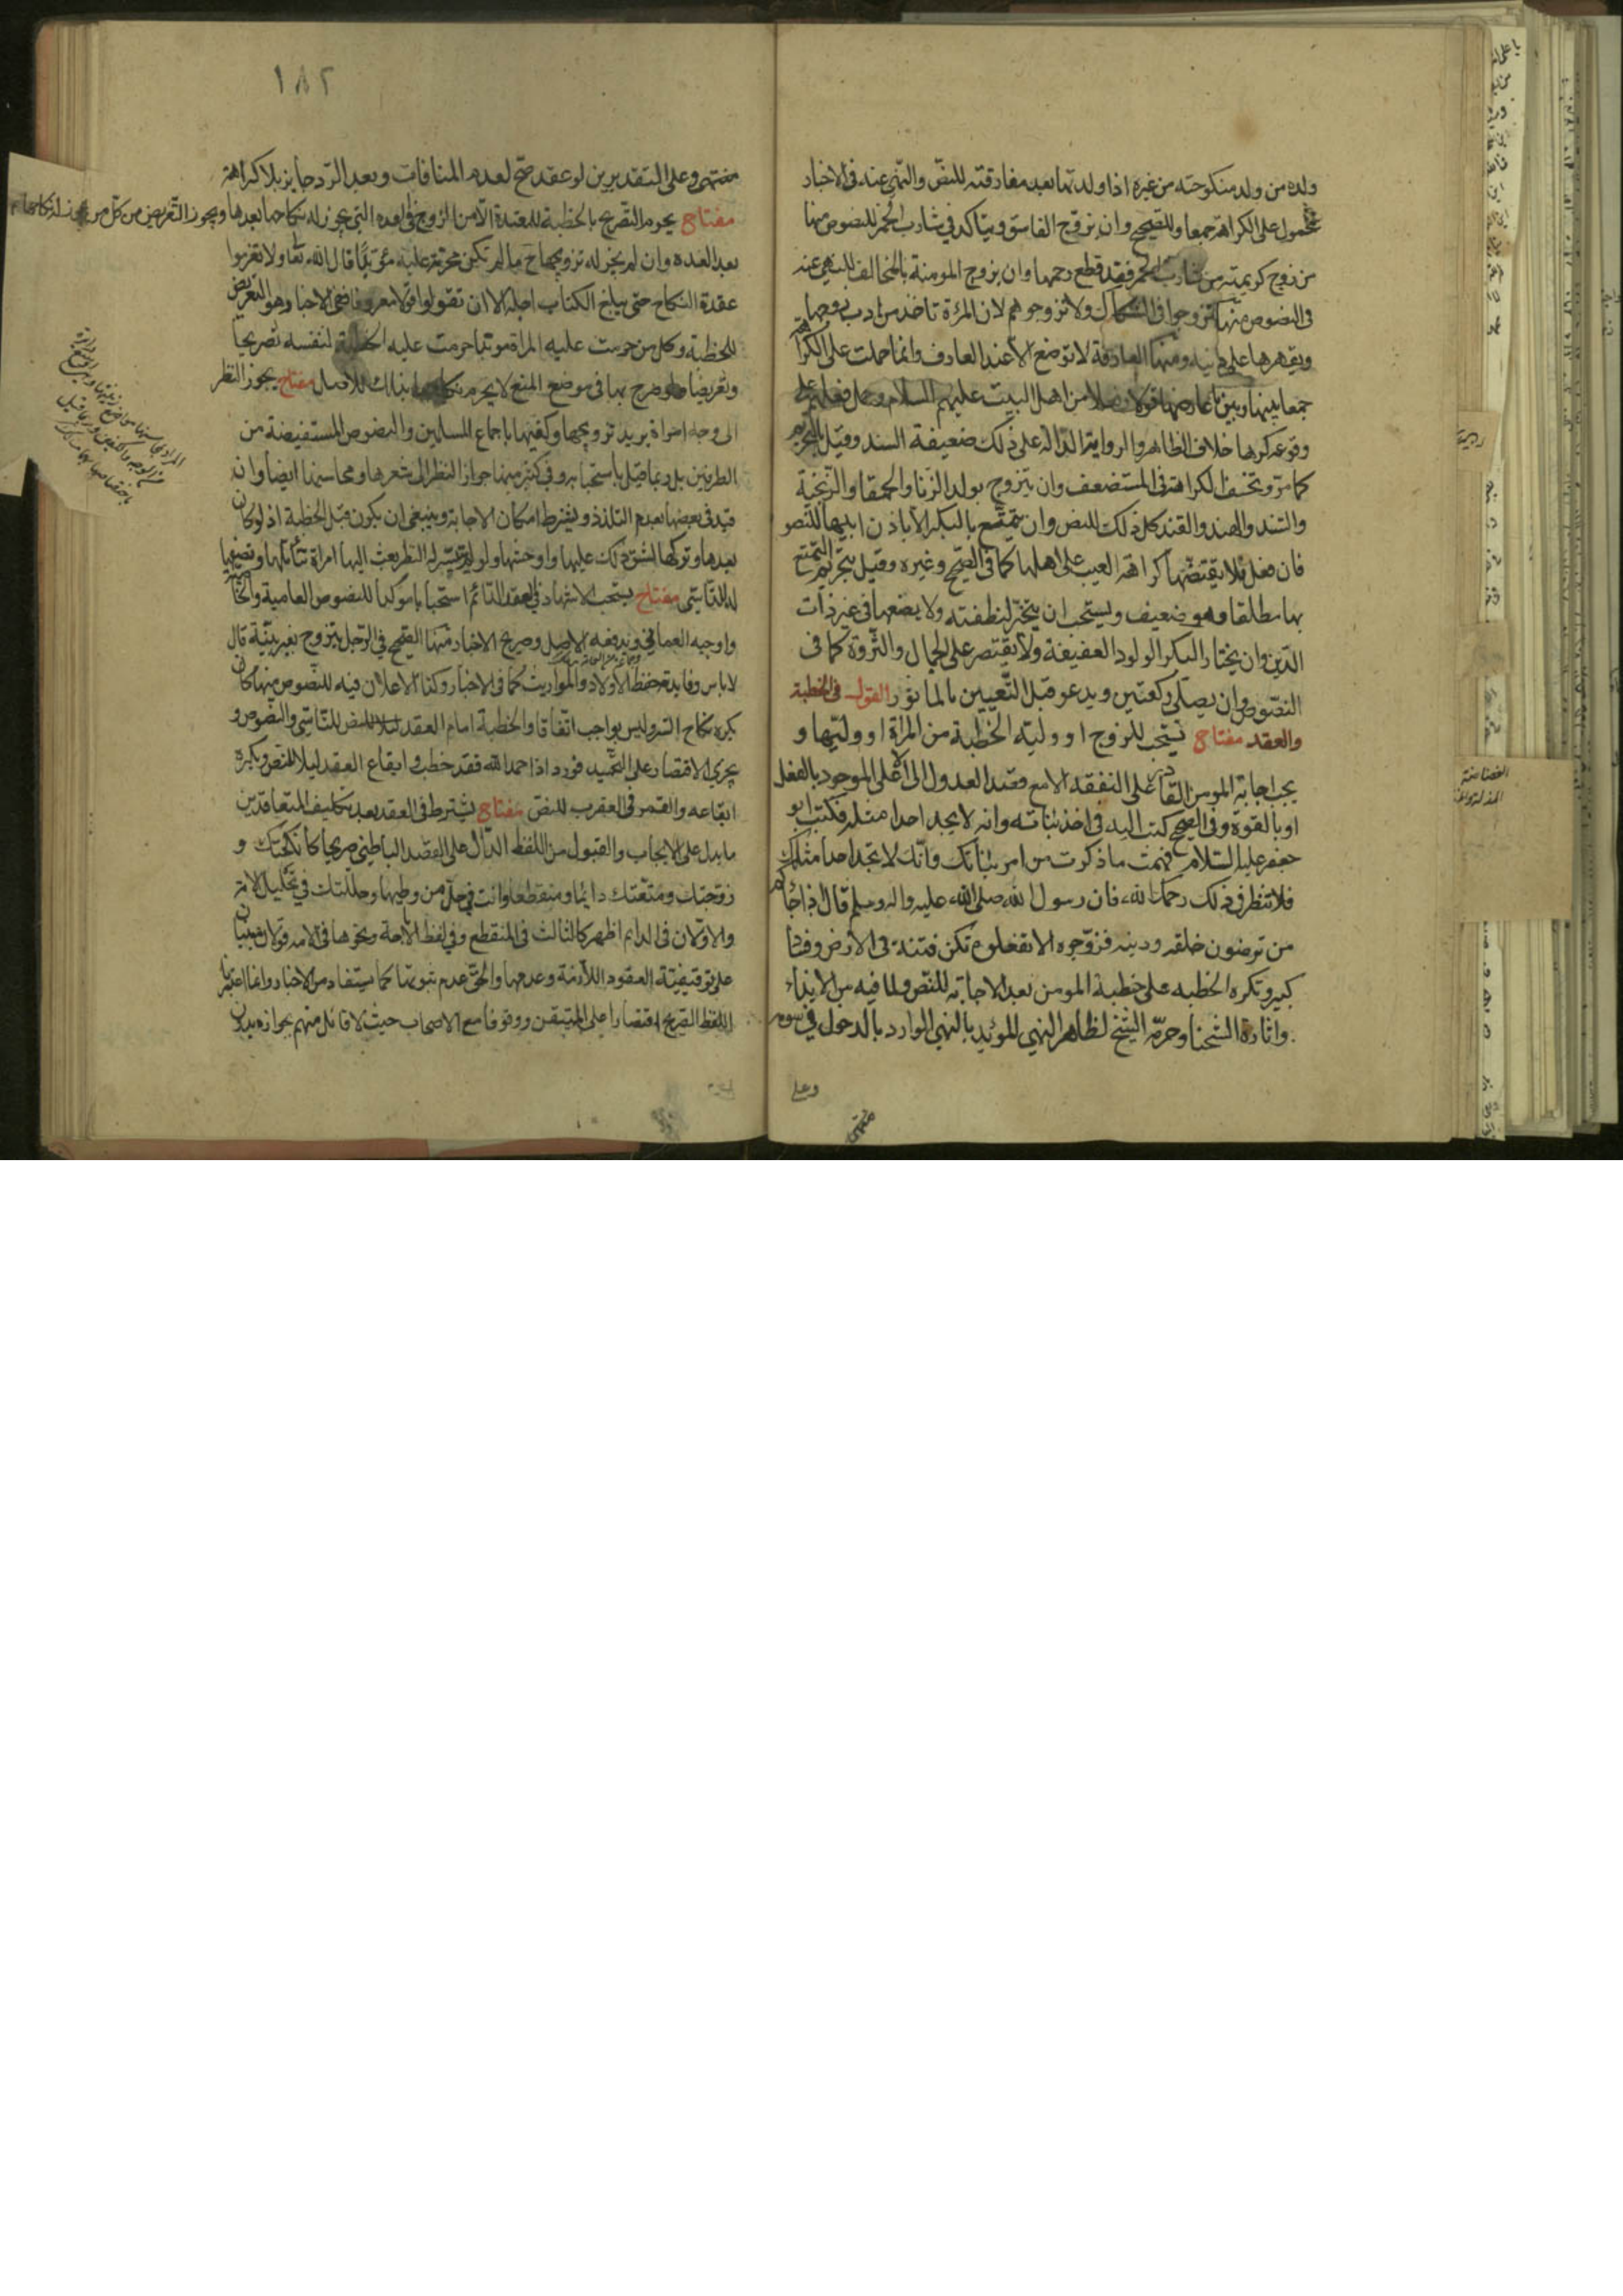 ولده من ولد منكوحته من غيره اذا ولدتها بعد مفارقته للنص والنهى عنه فى الاخبار
محمول على الكراهة جمعا وللصحيح وان يزوج الفاسق ويتاكد فى شارب الخمر للنصوص منها
من زوج كريمته من شارب الخمر فقد قطع رحمها وان يزوج المومنة بالمخالف للنهى عنه
فى النصوص منها تزوجوا فى الشكاك ولا تزوجوهم لان المرءة تاخذ من ادب زوجها
ويقهرها على دينه ومنها العارفة لا توضع الا عند العارف وانما حملت على الكراهة
جمعا بينها وبين ما عارضها قولا وفعلا من اهل البيت عليهم السلام وحمل فعلهم على
وقوعه كرها خلاف الظاهر والرواية الدالة على ذلك ضعيفة السند وقيل بالتحريم
كما مر وتخف الكراهة فى المستضعف وان يتزوج بولد الزنا والحمقا والزنجية
والسند والهند والقند كل ذلك للنص وان يتمتع بالبكر الا باذن ابيها للنصو
فان فعل فلا يقتضها كراهة العيب على اهلها كما فى الصحيح وغيره وقيل بتحريم التمتع
بها مطلقا وهو ضعيف ويستحب ان يتخير لنطفته ولا يضعها فى غير ذات
الدين وان يختار البكر الولود العفيفة ولا يقتصر على الجمال والثروة كما فى
النصوص وان يصلى ركعتين ويدعو قبل التعيين بالماثور القول فى الخطبة
والعقد مفتاح تستحب للزوج او وليه الخطبة من المراة او وليها و
يجب اجابة المومن القادر على النفقة الا مع قصد العدول الى الاعلى الموجود بالفعل
او بالقوة وفى الصحيح كتب اليه فى اخذ بناته وانه لا يجد احدا مثله فكتب ابو
جعفر عليه السلام فهمت ما ذكرت من امر بناتك وانك لا تجد احدا مثلك
فلا تنظر فى ذلك رحمك الله فان رسول الله صلى الله عليه واله وسلم قال اذا جاءكم
من ترضون خلقه ودينه فزوجوه الا تفعلوه تكن فتنة فى الارض وفساد
كبير وتكره الخطبه على خطبة المومن بعد الاجابة للنص ولما فيه من الايذاء
واثارة الشحنا وحرمه الشيخ لظاهر النهى المويد بالنهى الوارد بالدخول فى سومه
وعلى
١٨٢
وعلى التقديرين لو عقد صح لعدم المنافات وبعد الرد جايز بلا كراهة
مفتاح يحرم التصريح بالخطبة للمعتدة الا من الزوج فى العده التى يجوز له نكاحها بعدها ويجوز التعريض من كل من يجوز له نكاحها
بعد العده وان لم يجز له تزويجها ح ما لم تكن محرمة عليه مؤبدا قال الله تعا ولا تعزموا
عقدة النكاح حتى يبلغ الكتاب اجله الا ان تقولوا قولا معروفا ففى الاخبار هو التعريض
للخطبة وكل من حرمت عليه المراة موبدا حرمت عليه الخطبة لنفسه تصريحا
وتعريضا ولو صرح بها فى موضع المنع لا يحرم نكاحها بذلك للاصل مفتاح يجوز النظر
الى وجه امراة يريد تزويجها وكفيها باجماع المسلمين والنصوص المستفيضة من
الطرفين بل ربما قيل باستحبابه وفى كثير منها جواز النظر الى شعرها ومحاسنها ايضا وان
قيد فى بعضها بعدم التلذذ ويشترط امكان الاجابة وينبغى ان يكون قبل الخطبة اذ لو كان
بعدها وتركها لشق ذلك عليها واوحشها ولو لم يتيسر له النظر بعث اليها امراة تتاملها وتصفها
له للتاسى مفتاح يستحب الاشهاد فى العقد الدائم استحبابا موكدا للنصوص العامية والخاصة
واوجبه العمانى ويدفعه الاصل وصريح الاخبار منها الصحيح فى الرجل يتزوج بغير بينة قال
لا باس وفايدته حفظ الاولاد والمواريث كما فى الاخبار وكذا الاعلان فيه للنصوص منها كان
يكره نكاح السر وليس بواجب اتفاقا والخطبة امام العقد للتاسى والنصوص و
يجزى الاقتصار على التحميد فورد اذا حمد الله فقد خطب وايقاع العقد ليلا للنص ويكره
ايقاعه والقمر فى العقرب للنص مفتاح يشترط فى العقد بعد تكليف المتعاقدين
ما يدل على الايجاب والقبول من اللفظ الدال على القصد الباطنى صريحا كانكحتك و
زوجتك ومتعتك دايما ومنقطعا وانت فى حل من وطيها وحللتك فى تحليل الامة
والاولان فى الدايم اظهر كالثالث فى المنقطع وفى لفظ الاباحة ونحوها فى الامة قولان مبنيان
على توقيفية العقود اللازمة وعدمها والحق عدم ثبوتها كما يستفاد من الاخبار وانما اعتبرنا
اللفظ الصريح اقتصارا على المتيقن ووقوفا مع الاصحاب حيث لا قائل منهم بجوازه بدون